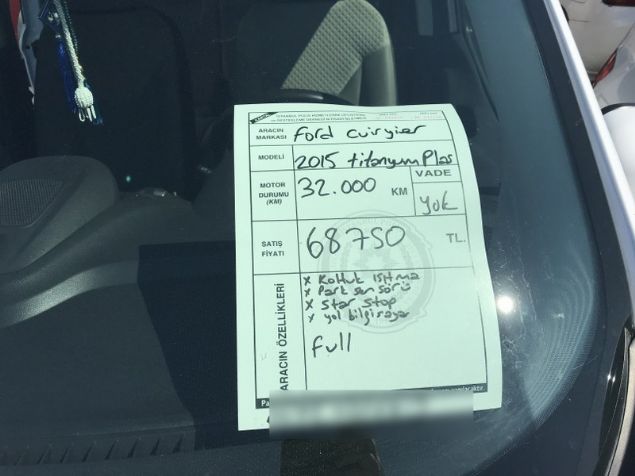 ARACIN MARKASI Ford cuiryier
MODELİ 2015 titanyum Plas
MOTOR DURUMU (KM) 32.000 KM VADE yok
SATIŞ FİYATI 68750 TL.
ARACIN ÖZELLİKLERİ
x Koltuk ısıtma
x Park sensörü
x Star stop
x yol bilgisayar
full